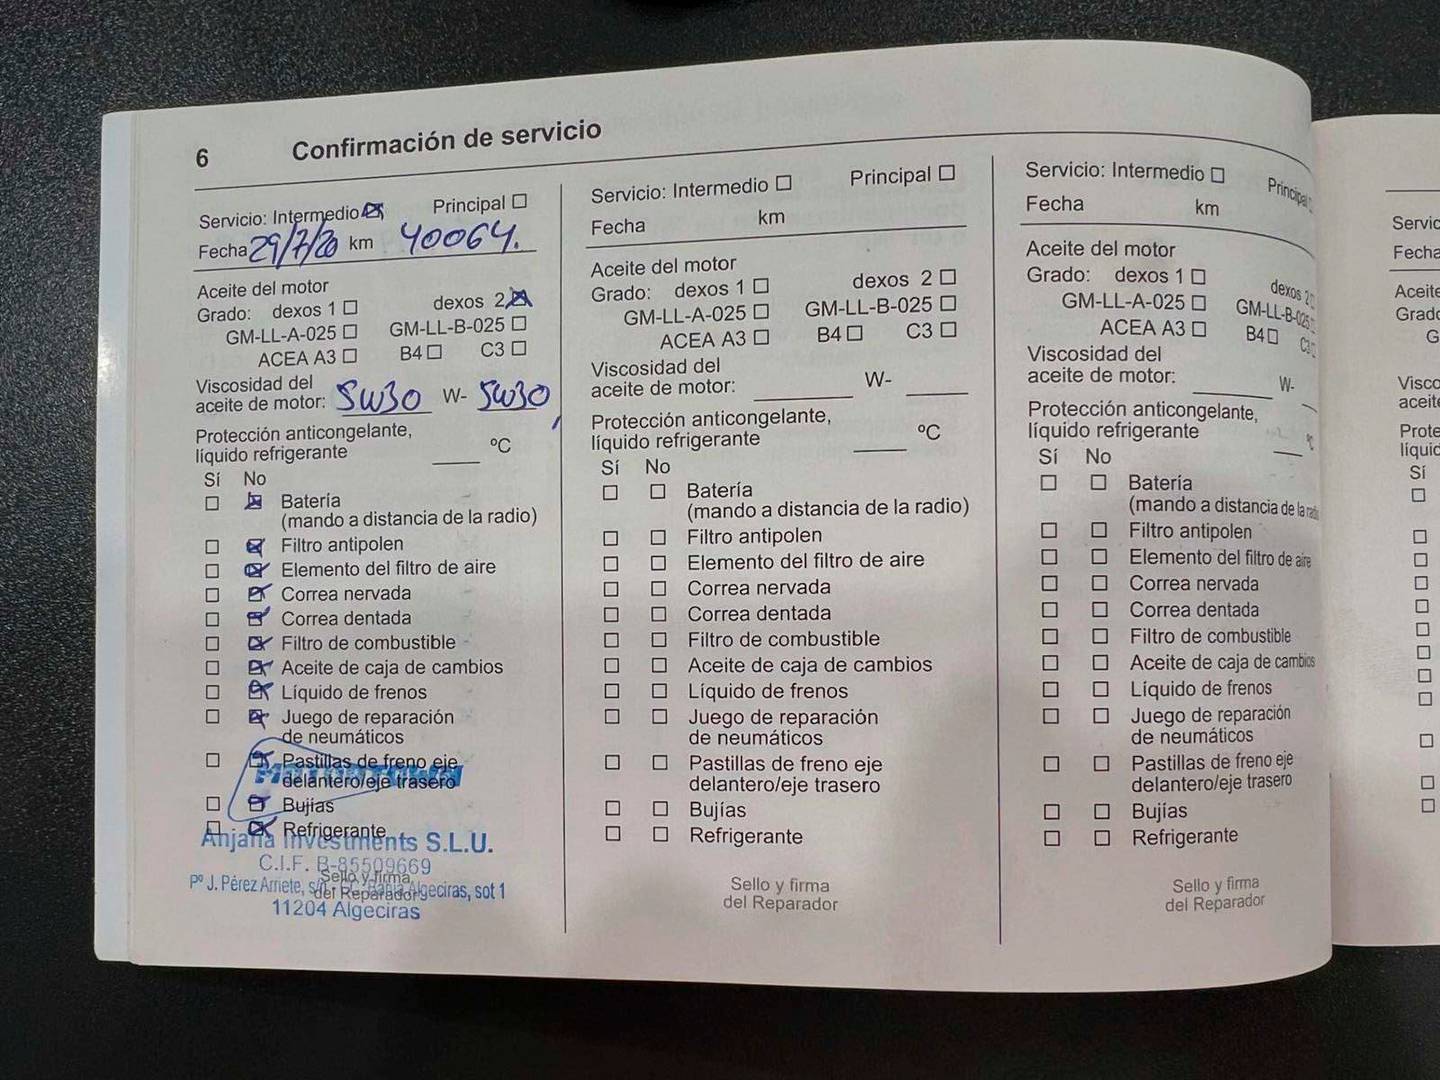 6 Confirmación de servicio
Servicio: Intermedio Principal
Fecha 29/7/20 km 40064.
Aceite del motor
Grado: dexos 1 dexos 2
GM-LL-A-025 GM-LL-B-025
ACEA A3 B4 C3
Viscosidad del
aceite de motor: 5W30 W- 5W30
Protección anticongelante,
líquido refrigerante ºC
Sí No
Batería
(mando a distancia de la radio)
Filtro antipolen
Elemento del filtro de aire
Correa nervada
Correa dentada
Filtro de combustible
Aceite de caja de cambios
Líquido de frenos
Juego de reparación
de neumáticos
Pastillas de freno eje
delantero/eje trasero
MOTORTOWN
Bujías
Refrigerante
Anjana Investments S.L.U.
C.I.F. B-85509669
Sello y firma
del Reparador
Pº J. Pérez Arriete, Algeciras, sot 1
11204 Algeciras
Servicio: Intermedio Principal
Fecha km
Aceite del motor
Grado: dexos 1 dexos 2
GM-LL-A-025 GM-LL-B-025
ACEA A3 B4 C3
Viscosidad del
aceite de motor: W-
Protección anticongelante,
líquido refrigerante ºC
Sí No
Batería
(mando a distancia de la radio)
Filtro antipolen
Elemento del filtro de aire
Correa nervada
Correa dentada
Filtro de combustible
Aceite de caja de cambios
Líquido de frenos
Juego de reparación
de neumáticos
Pastillas de freno eje
delantero/eje trasero
Bujías
Refrigerante
Sello y firma
del Reparador
Servicio: Intermedio Principal
Fecha km
Aceite del motor
Grado: dexos 1 dexos 2
GM-LL-A-025 GM-LL-B-025
ACEA A3 B4 C3
Viscosidad del
aceite de motor: W-
Protección anticongelante,
líquido refrigerante ºC
Sí No
Batería
(mando a distancia de la radio)
Filtro antipolen
Elemento del filtro de aire
Correa nervada
Correa dentada
Filtro de combustible
Aceite de caja de cambios
Líquido de frenos
Juego de reparación
de neumáticos
Pastillas de freno eje
delantero/eje trasero
Bujías
Refrigerante
Sello y firma
del Reparador
Servic
Fecha
Aceite
Grado
G
Visco
aceite
Prote
líquid
Sí